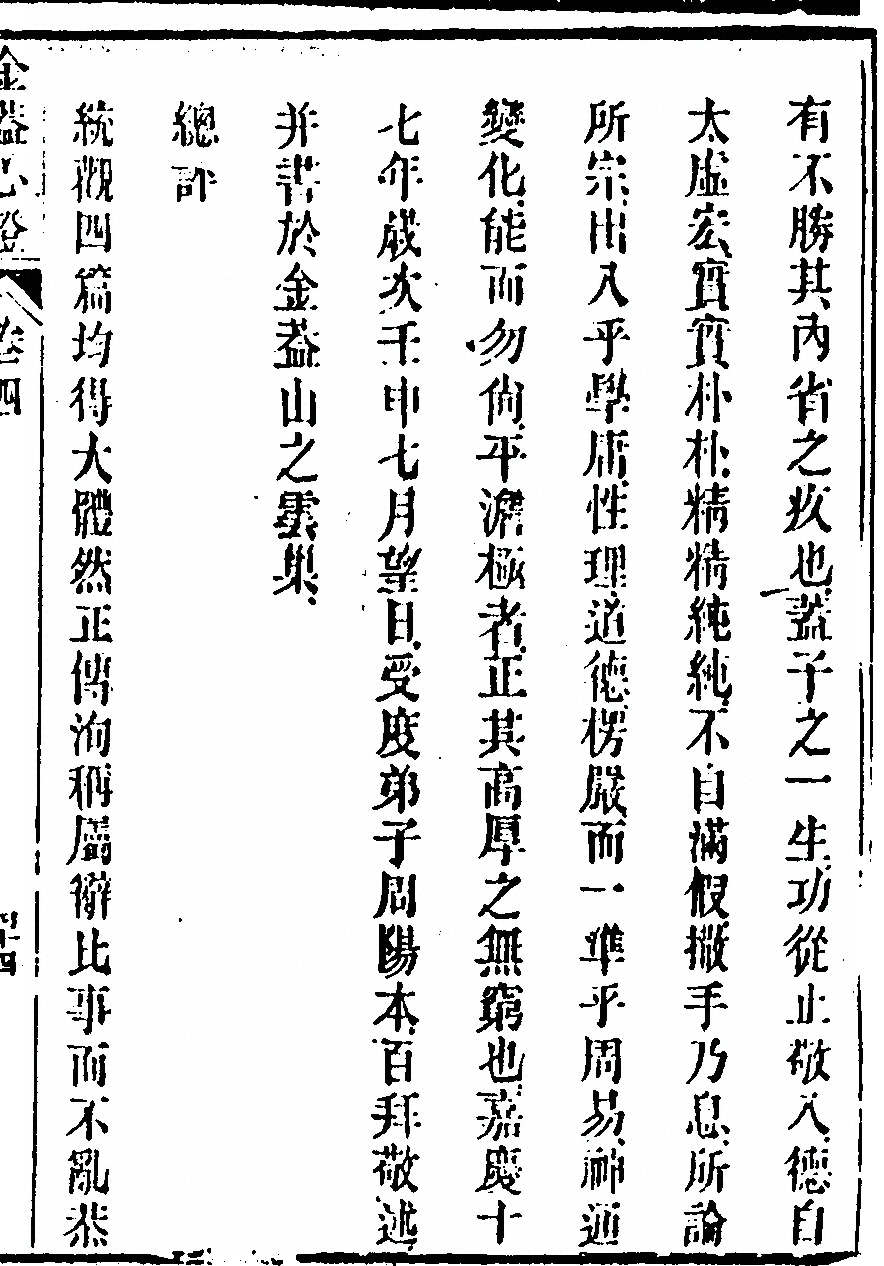 有不勝其內省之疚也蓋子之一生功從止敬入德自
太虛宏實實朴朴精精純純不自滿假撒手乃息所論
所宗出入乎學庸性理道德楞嚴而一準乎周易神通
變化能而勿尙平澹極者正其高厚之無窮也嘉慶十
七年歲次壬申七月望日受度弟子周陽本百拜敬述
并書於金蓋山之雲巢
總評
統觀四篇均得大體然正傳洵稱屬辭比事而不亂恭
金蓋心燈 卷四 四十四